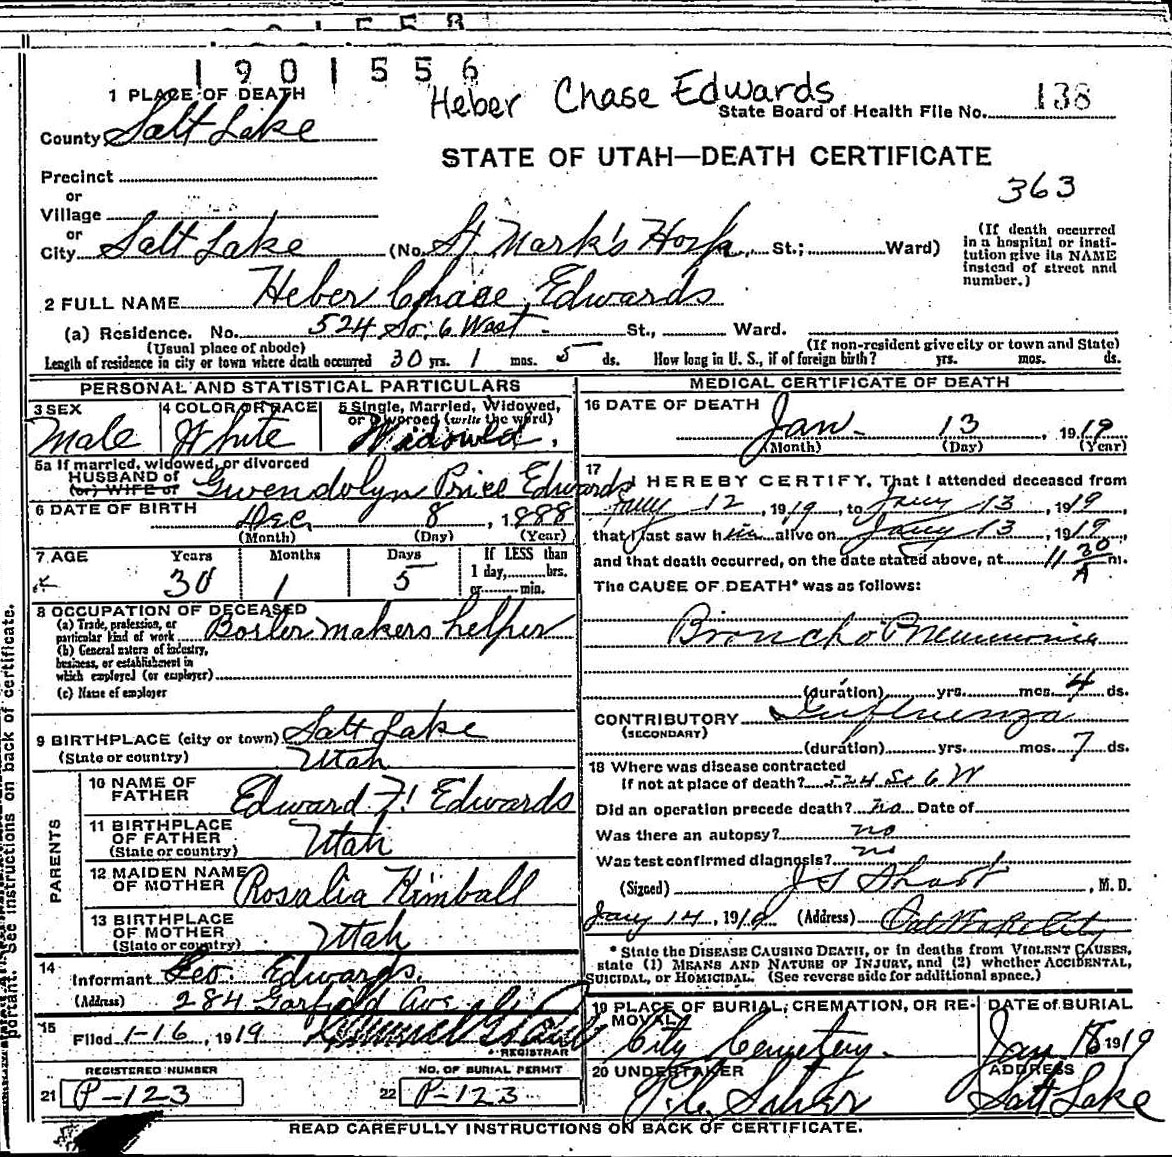 1901556
Heber Chase Edwards
1 PLACE OF DEATH
State Board of Health File No. 138
County Salt Lake
STATE OF UTAH—DEATH CERTIFICATE
Precinct
363
or
Village
or
City Salt Lake (No. St. Mark's Hosp, St.; Ward)
(If death occurred in a hospital or insti-
tution give its NAME
instead of street and
number.)
2 FULL NAME Heber Chase Edwards
(a) Residence. No. 524 So. 6 West St., Ward.
(Usual place of abode) (If non-resident give city or town and State)
Length of residence in city or town where death occurred 30 yrs. 1 mos. 5 ds. How long in U. S., if of foreign birth? yrs. mos. ds.
PERSONAL AND STATISTICAL PARTICULARS
3 SEX Male
4 COLOR OR RACE White
5 Single, Married, Widowed,
or Divorced (write the word)
Widowed.
5a If married, widowed, or divorced
HUSBAND of
(or) WIFE of
Gwendolyn Price Edwards
6 DATE OF BIRTH Dec. 8, 1888
(Month) (Day) (Year)
7 AGE Years Months Days If LESS than
1 day, hrs.
or min.
30 1 5
8 OCCUPATION OF DECEASED
(a) Trade, profession, or
particular kind of work Boiler makers helper
(b) General nature of industry,
business, or establishment in
which employed (or employer)
(c) Name of employer
9 BIRTHPLACE (city or town) Salt Lake
(State or country) Utah
PARENTS
10 NAME OF
FATHER Edward F. Edwards
11 BIRTHPLACE
OF FATHER
(State or country) Utah
12 MAIDEN NAME
OF MOTHER Rosalia Kimball
13 BIRTHPLACE
OF MOTHER
(State or country) Utah
14
Informant Geo. Edwards.
(Address) 284 Garfield Ave
15
Filed 1-16, 1919
REGISTRAR
REGISTERED NUMBER
21 P-123
NO. OF BURIAL PERMIT
22 P-123
MEDICAL CERTIFICATE OF DEATH
16 DATE OF DEATH Jan. 13, 1919
(Month) (Day) (Year)
17
I HEREBY CERTIFY, That I attended deceased from
Jany 12, 1919, to Jany 13, 1919,
that I last saw him alive on Jany 13, 1919,
and that death occurred, on the date stated above, at 11 30 A m.
The CAUSE OF DEATH* was as follows:
Broncho Pneumonia
(duration) yrs. mos. 4 ds.
CONTRIBUTORY Influenza
(SECONDARY)
(duration) yrs. mos. 7 ds.
18 Where was disease contracted
if not at place of death? 524 So 6 W
Did an operation precede death? no Date of
Was there an autopsy? no
Was test confirmed diagnosis? no
(Signed) , M. D.
Jany 14, 1919 (Address)
* State the DISEASE CAUSING DEATH, or in deaths from VIOLENT CAUSES,
state (1) MEANS AND NATURE OF INJURY, and (2) whether ACCIDENTAL,
SUICIDAL, or HOMICIDAL. (See reverse side for additional space.)
19 PLACE OF BURIAL, CREMATION, OR RE-
MOVAL
City Cemetery.
DATE OF BURIAL
Jan. 16 1919
20 UNDERTAKER
ADDRESS
Salt Lake
READ CAREFULLY INSTRUCTIONS ON BACK OF CERTIFICATE.
portant. See instructions on back of certificate.